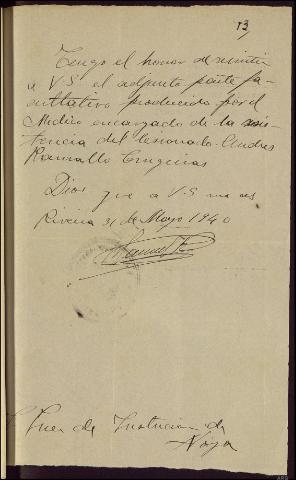 13
Tengo el honor de remitir
a V.S. el adjunto parte fa-
cultativo producido por el
Médico encargado de la asis-
tencia del lesionado Andres
Ramallo
Dios gue a V.S. m as
Riveira 31 de Mayo 1940
Juez de Instruccion de
Noya